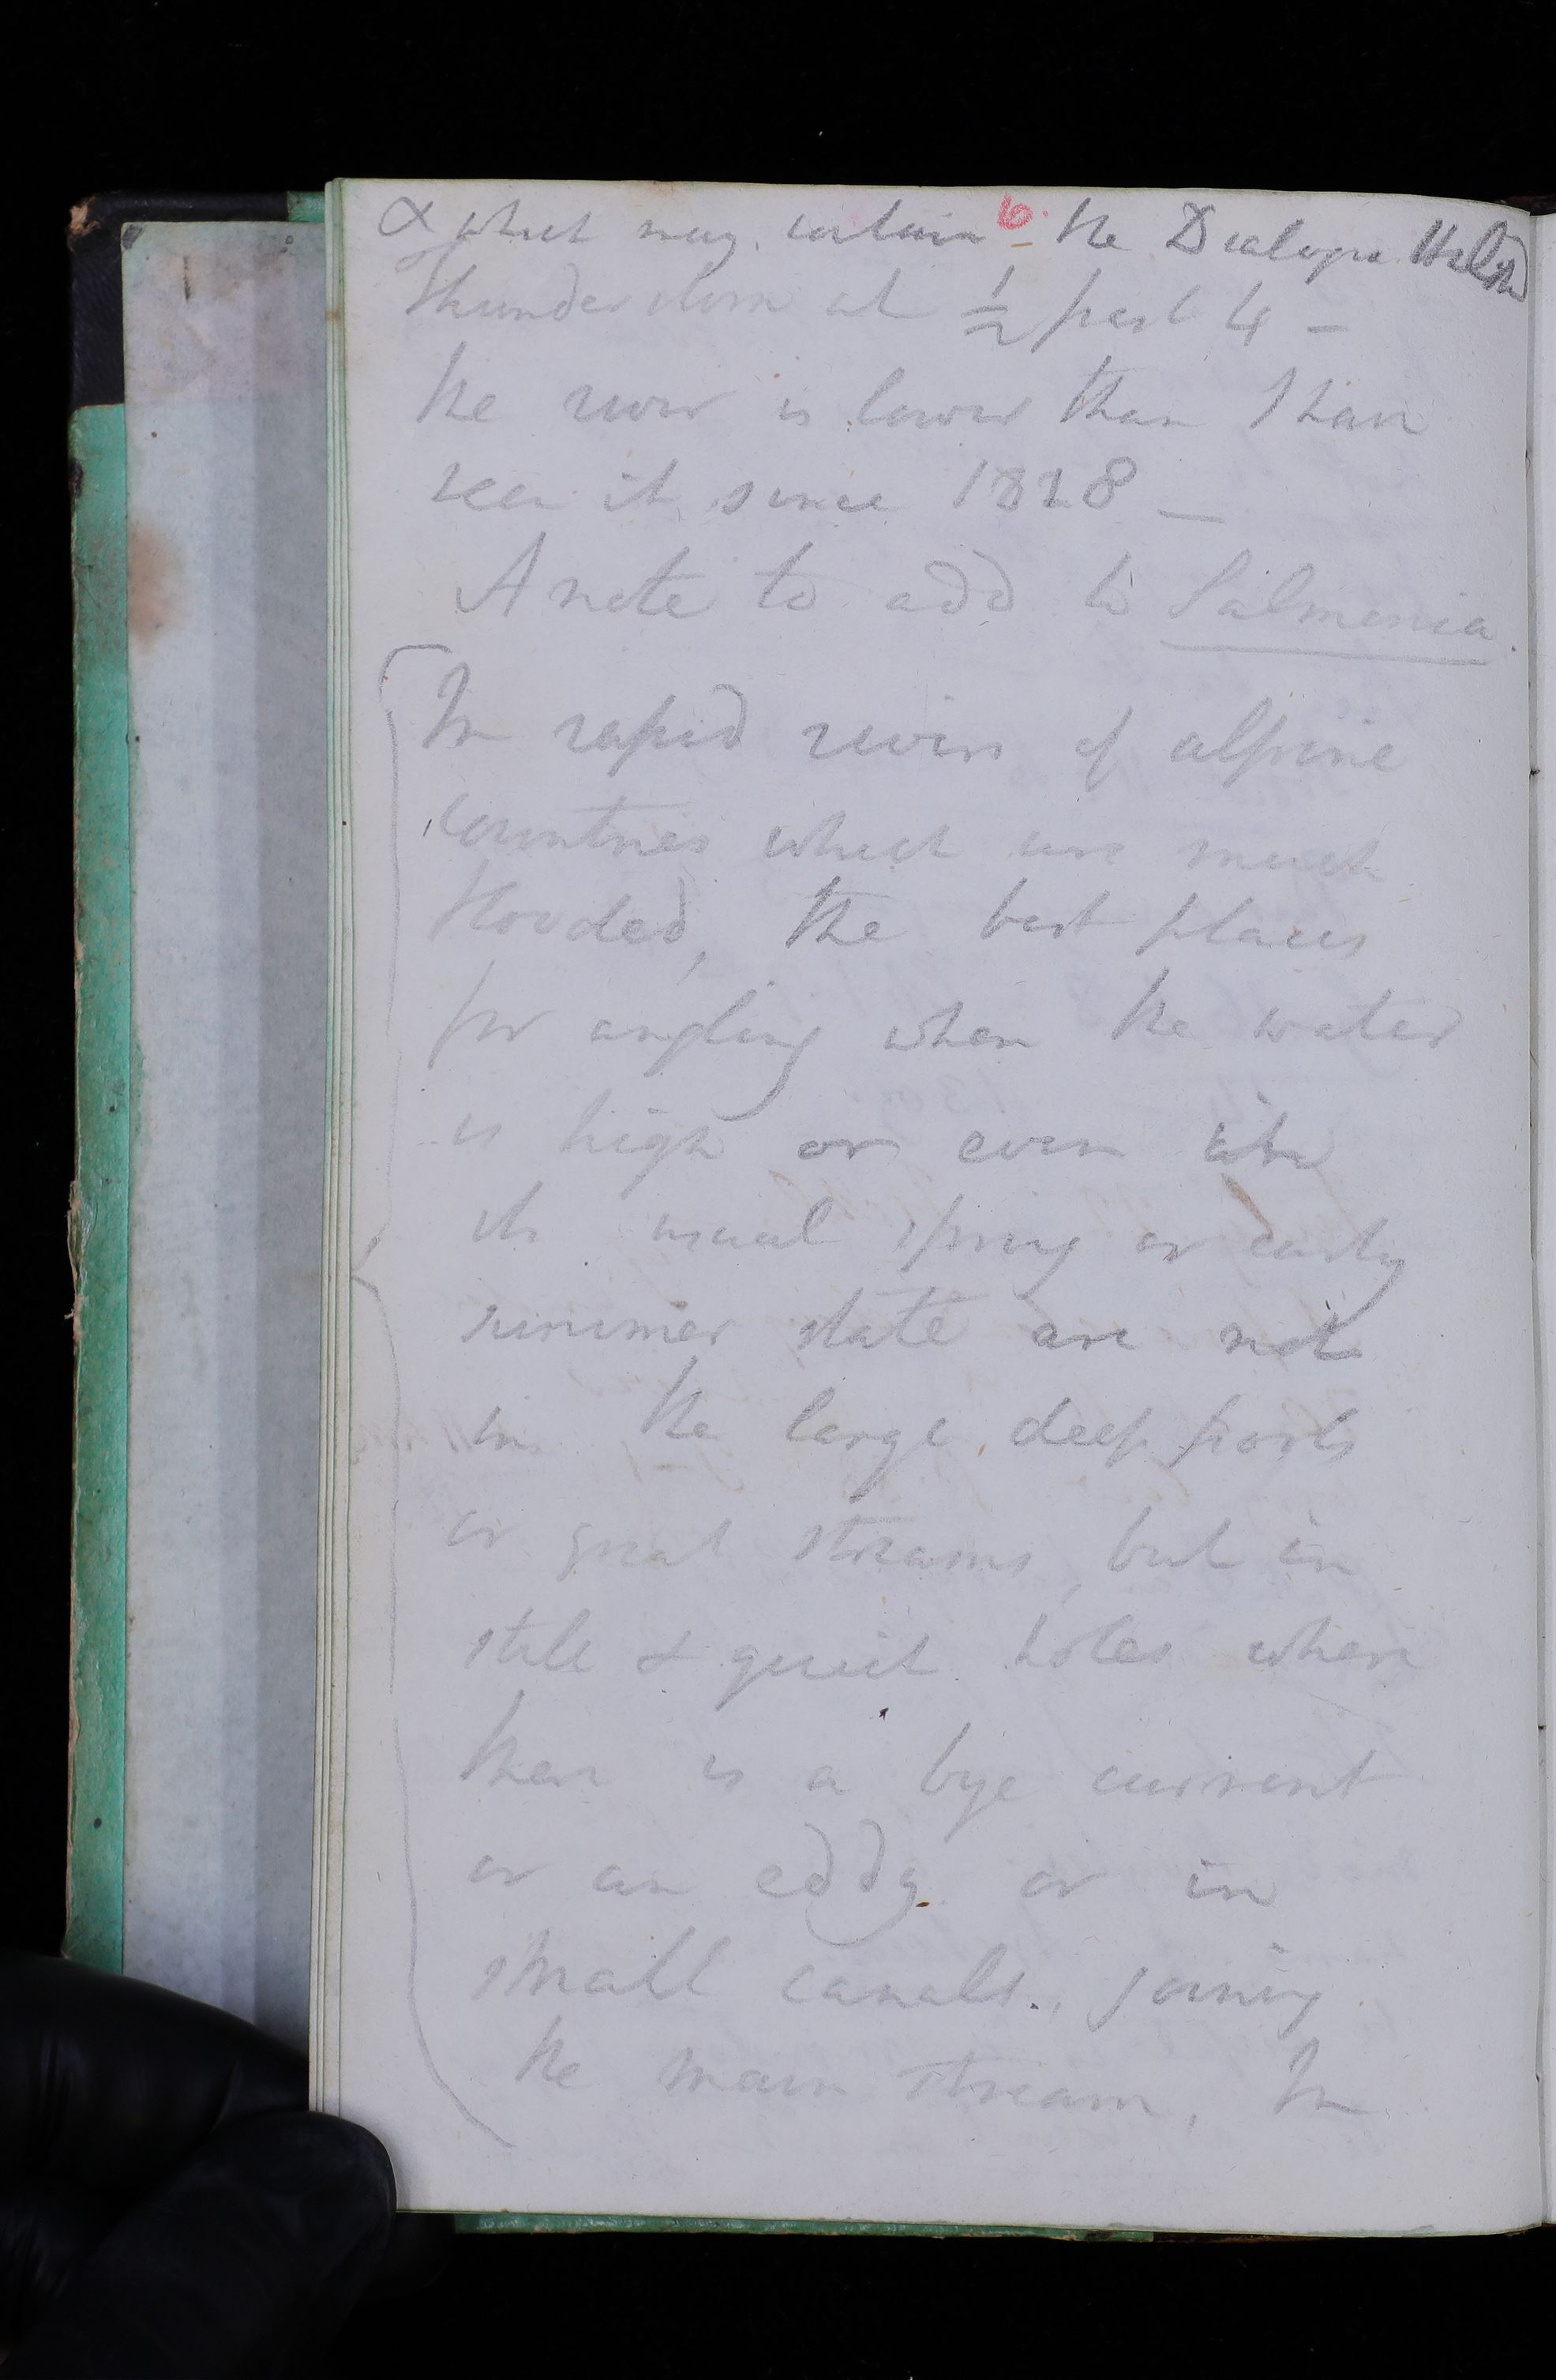 & which may contain the Dialogue
6.
Thunder storm at ½ past 4 –
the river is lower than I have
seen it since 1828 –
A note to add to Salmonia.
In rapid rivers of alpine
countries which are much
flooded, the best places
for angling when the water
is high or even in
its usual spring or early
summer state are not
in the large deep pools
or great streams, but in
still & quiet holes where
there is a bye current
or an eddy or in
small canals, joining
the main stream, In